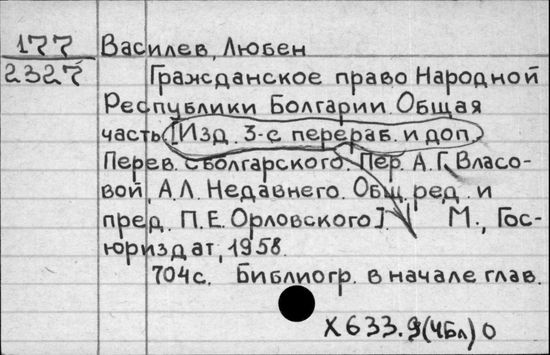 177 Василев, Любен
2327 Гражданское право Народной
Республики Болгарии. Общая
часть [Изд. 3-е перераб. и доп.
Перев. с болгарского. Пер. А.Г. Власо-
вой, А.Л. Недавнего. Общ. ред. и
пред. П.Е. Орловского]. М., Гос-
юриздат, 1958.
704с. Библиогр. в начале глав.
X633.9(4Бл)0